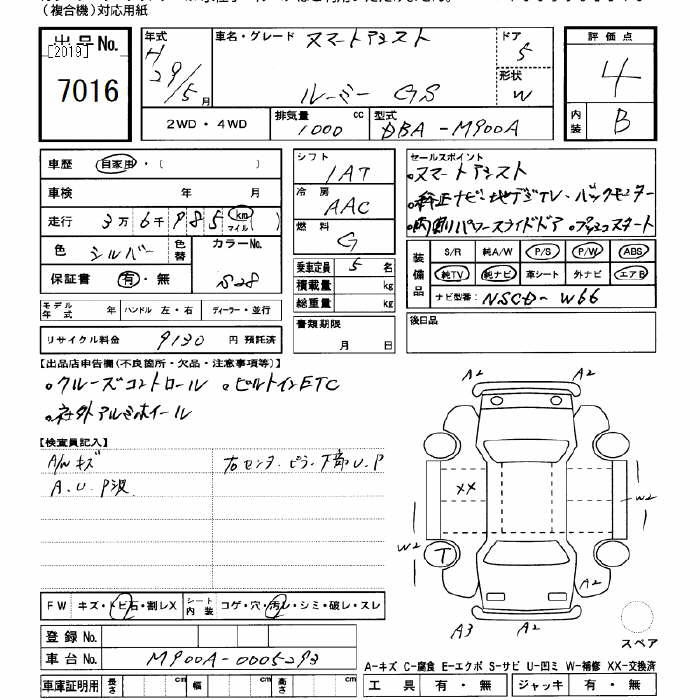 (複合機)対応用紙
出品No.
[2019]
7016
年式
H
29/5
月
車名・グレード
スマートアシスト
ルーミー GS
ドア
5
形状
W
評価点
4
内装
B
2WD・4WD
排気量
1000
cc
型式
DBA-M900A
車歴
自家用・( )
車検
年
月
走行
3万6千985
km
マイル
( )
色
シルバー
色替
カラーNo.
S28
保証書
有・無
モデル年式
年
ハンドル 左・右
ディーラー・並行
リサイクル料金
9130
円 預託済
シフト
IAT
冷房
AAC
燃料
G
乗車定員
5
名
積載量
kg
総重量
kg
書類期限
月
日
セールスポイント
・スマートアシスト
・純正ナビ・地デジTV・バックモニター
・両側パワースライドドア・プッシュスタート
装備品
S/R
純A/W
P/S
P/W
ABS
純TV
純ナビ
革シート
外ナビ
エアB
ナビ型番:
NSCD-W66
後日品
【出品店申告欄(不良箇所・欠品・注意事項等)】
・クルーズコントロール ・ビルトインETC
・社外アルミホイール
【検査員記入】
A/W キズ
A.U.P波
右センターピラー下部U.P
A2
A2
XX
W2
W2
T
A2
A3
A2
スペア
FW
キズ・トビ石・割レX
シート内装
コゲ・穴・汚レ・シミ・破レ・スレ
登録No.
車台No.
M900A-0005293
車庫証明用
長さ
cm
幅
cm
高さ
cm
A-キズ C-腐食 E-エクボ S-サビ U-凹ミ W-補修 XX-交換済
工具
有・無
ジャッキ
有・無